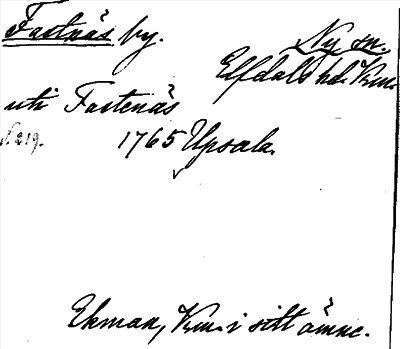 Fastnäs by.
Ny sn.
Elfdals hd. Vrm.
uti Fastenäs
s. 219.
1765 Upsala.
Ekman, Vrm. i sitt ämne.